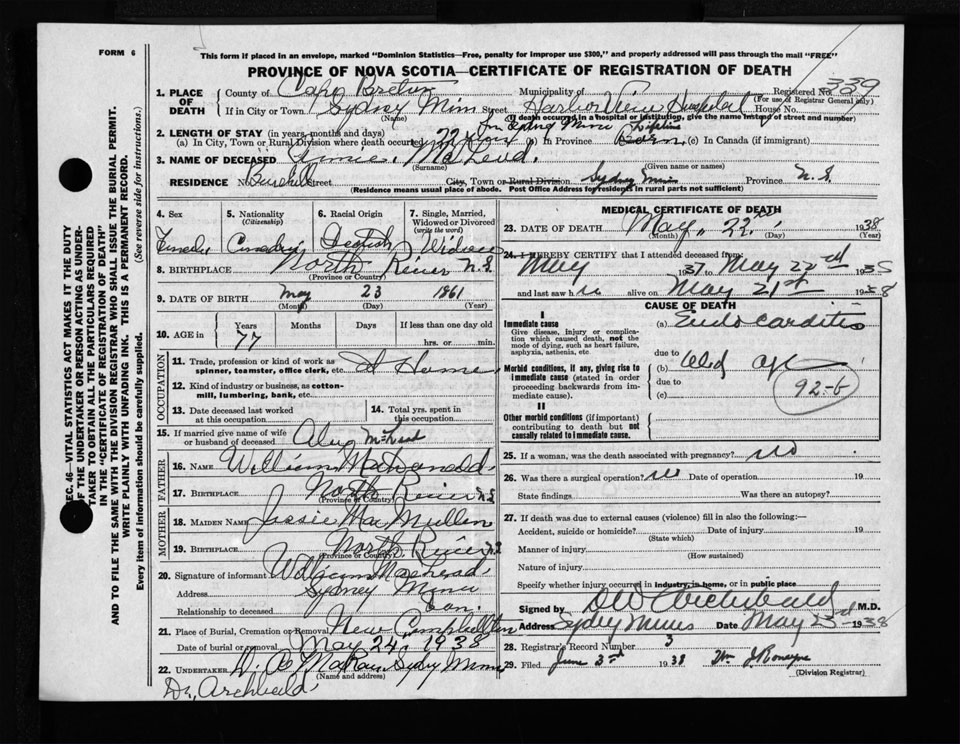 FORM 6
This form if placed in an envelope, marked "Dominion Statistics—Free, penalty for improper use $300," and properly addressed will pass through the mail "FREE"
PROVINCE OF NOVA SCOTIA—CERTIFICATE OF REGISTRATION OF DEATH
SEC. 46—VITAL STATISTICS ACT MAKES IT THE DUTY
OF THE UNDERTAKER OR PERSON ACTING AS UNDER-
TAKER TO OBTAIN ALL THE PARTICULARS REQUIRED
IN THE "CERTIFICATE OF REGISTRATION OF DEATH"
AND TO FILE THE SAME WITH THE DIVISION REGISTRAR WHO SHALL ISSUE THE BURIAL PERMIT.
WRITE PLAINLY WITH UNFADING INK. THIS IS A PERMANENT RECORD.
Every item of information should be carefully supplied. (See reverse side for instructions.)
1. PLACE OF DEATH County of Cape Breton Municipality of Registered No. 339
(For use of Registrar General only)
If in City or Town Sydney Mines Street Harbor View Hospital House No.
(Name) (If death occurred in a hospital or institution, give the name instead of street and number)
2. LENGTH OF STAY (in years, months and days) In Sydney Mines Lifetime
(a) In City, Town or Rural Division where death occurred 22 years (b) In Province Born (c) In Canada (if immigrant)
3. NAME OF DECEASED MacLeod.
(Surname) (Given name or names)
RESIDENCE No. Street City, Town or Rural Division Sydney Mines Province N.S.
(Residence means usual place of abode. Post Office Address for residents in rural parts not sufficient)
4. Sex 5. Nationality (Citizenship) 6. Racial Origin 7. Single, Married, Widowed or Divorced (write the word)
Female Scottish Widow
8. BIRTHPLACE North River N.S.
(Province or Country)
9. DATE OF BIRTH May 23 1861
(Month) (Day) (Year)
10. AGE in Years Months Days If less than one day old
77 hrs. or min.
OCCUPATION
11. Trade, profession or kind of work as spinner, teamster, office clerk, etc. At Home
12. Kind of industry or business, as cotton-mill, lumbering, bank, etc.
13. Date deceased last worked at this occupation 14. Total yrs. spent in this occupation
15. If married give name of wife or husband of deceased McLeod
FATHER
16. NAME William
17. BIRTHPLACE North River N.S.
(Province or Country)
MOTHER
18. MAIDEN NAME Jessie MacMullen
19. BIRTHPLACE North River N.S.
(Province or Country)
20. Signature of informant William MacLeod
Address Sydney Mines
Relationship to deceased Son.
21. Place of Burial, Cremation or Removal New Campbellton
Date of burial or removal May 24, 1938
22. UNDERTAKER Sydney Mines
(Name and address)
Dr. Archbald
MEDICAL CERTIFICATE OF DEATH
23. DATE OF DEATH May 22nd 1938
(Month) (Day) (Year)
24. I HEREBY CERTIFY that I attended deceased from
May 1937 to May 22nd 1938
and last saw h alive on May 21st 1938
CAUSE OF DEATH
I
Immediate cause (a) Endocarditis
Give disease, injury or complication which caused death, not the mode of dying, such as heart failure, asphyxia, asthenia, etc.
due to
Morbid conditions, if any, giving rise to immediate cause (stated in order proceeding backwards from immediate cause). (b) Old age
due to
(c)
92-b
II
Other morbid conditions (if important) contributing to death but not causally related to immediate cause.
25. If a woman, was the death associated with pregnancy? no
26. Was there a surgical operation? no Date of operation 19
State findings Was there an autopsy?
27. If death was due to external causes (violence) fill in also the following:—
Accident, suicide or homicide? Date of injury 19
(State which)
Manner of injury
(How sustained)
Nature of injury
Specify whether injury occurred in industry, in home, or in public place
Signed by D W Archibald M.D.
Address Sydney Mines Date May 23rd 1938
28. Registrar's Record Number 3
29. Filed June 3rd 1938
(Division Registrar)